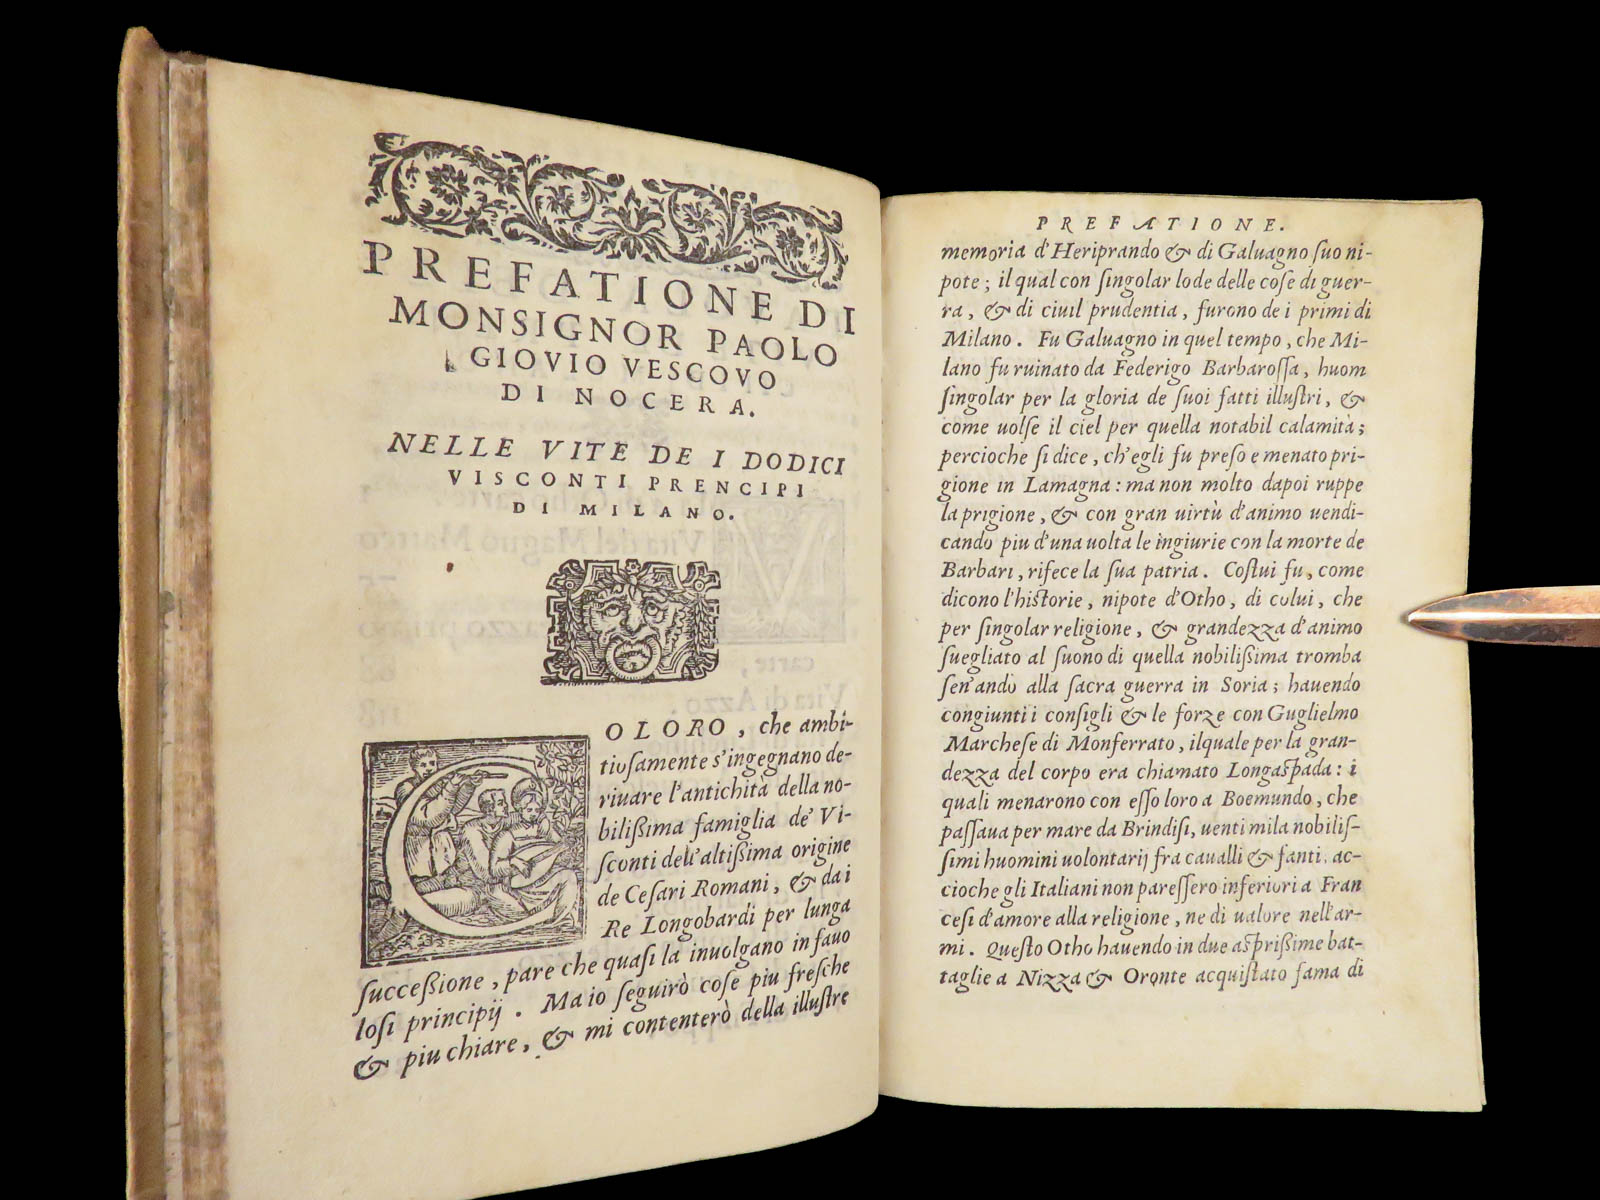 PREFATIONE DI
MONSIGNOR PAOLO
GIOVIO VESCOVO
DI NOCERA.
NELLE VITE DE I DODICI
VISCONTI PRENCIPI
DI MILANO.
COLORO, che ambi-
tiosamente s'ingegnano de-
rivare l'antichità della no-
bilißima famiglia de' Vi-
ſconti dell'altißima origine
de Ceſari Romani, & da i
Re Longobardi per lunga
ſucceßione, pare che quaſi la inuolgano in fauo
loſi principij. Ma io ſeguirò coſe piu freſche
& piu chiare, & mi contenterò della illuſtre
PREFATIONE.
memoria d'Heriprando & di Galuagno ſuo ni-
pote; il qual con ſingolar lode delle coſe di guer-
ra, & di ciuil prudentia, furono de i primi di
Milano. Fu Galuagno in quel tempo, che Mi-
lano fu ruinato da Federigo Barbaroſſa, huom
ſingolar per la gloria de ſuoi fatti illuſtri, &
come uolſe il ciel per quella notabil calamità;
percioche ſi dice, ch'egli fu preſo e menato pri-
gione in Lamagna: ma non molto dapoi ruppe
la prigione, & con gran uirtù d'animo uendi-
cando piu d'una uolta le ingiurie con la morte de
Barbari, rifece la ſua patria. Coſtui fu, come
dicono l'hiſtorie, nipote d'Otho, di colui, che
per ſingolar religione, & grandezza d'animo
ſuegliato al ſuono di quella nobilißima tromba
ſen'andò alla ſacra guerra in Soria; hauendo
congiunti i conſigli & le forze con Guglielmo
Marcheſe di Monferrato, ilquale per la gran-
dezza del corpo era chiamato Longaſpada: i
quali menarono con eſſo loro a Boemundo, che
paſſaua per mare da Brindiſi, uenti mila nobiliſ-
ſimi huomini uolontarij fra caualli & fanti, ac-
cioche gli Italiani non pareſſero inferiori a Fran
ceſi d'amore alla religione, ne di ualore nell'ar-
mi. Queſto Otho hauendo in due aſprißime bat-
taglie a Nizza & Oronte acquiſtato fama di